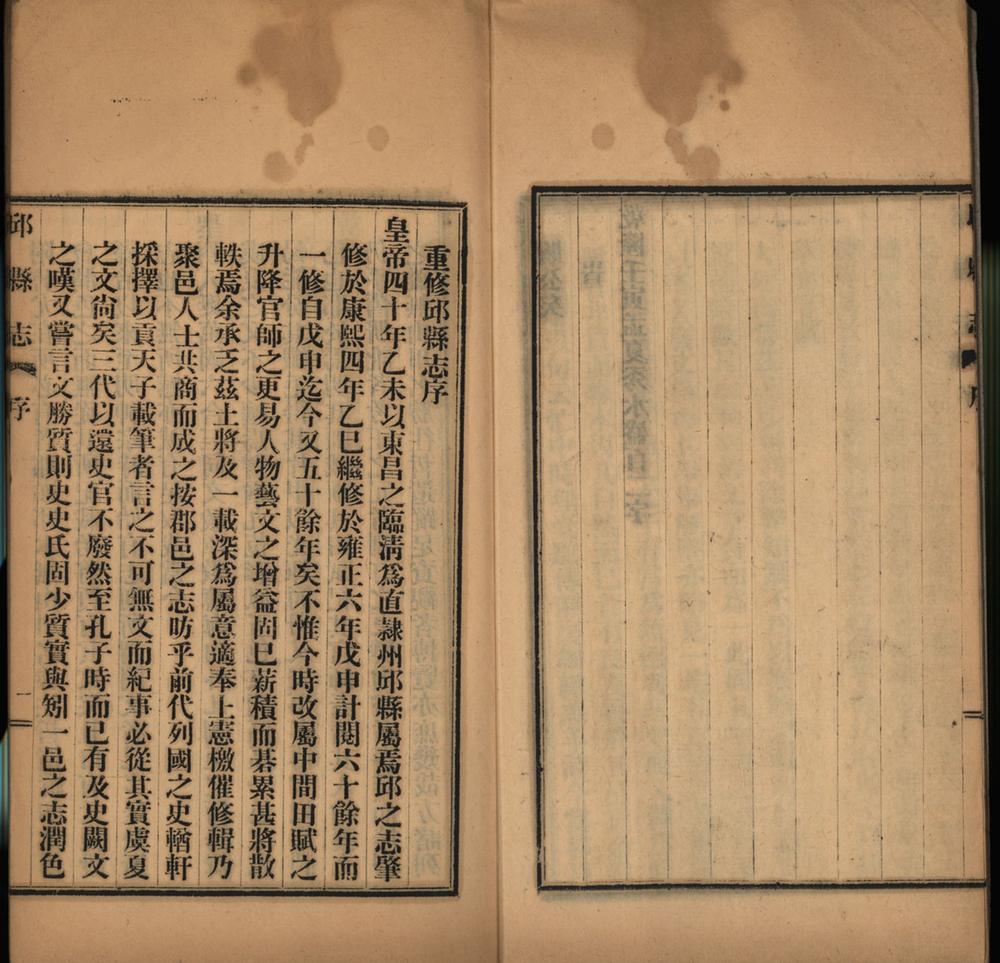 重修邱縣志序
皇帝四十年乙未以東昌之臨淸爲直隸州邱縣屬焉邱之志肇
修於康熙四年乙巳繼修於雍正六年戊申計閱六十餘年而
一修自戊申迄今又五十餘年矣不惟今時改屬中間田賦之
升降官師之更易人物藝文之增益固已薪積而碁累甚將散
軼焉余承乏茲土將及一載深爲屬意適奉上憲檄催修輯乃
聚邑人士共商而成之按郡邑之志昉乎前代列國之史輶軒
採擇以貢天子載筆者言之不可無文而紀事必從其實虞夏
之文尙矣三代以還史官不廢然至孔子時而已有及史闕文
之嘆又嘗言文勝質則史史氏固少質實與矧一邑之志潤色
邱縣志
序
一